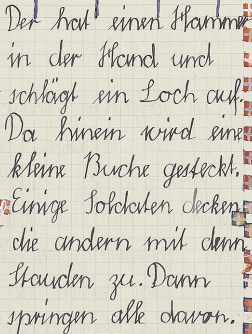 Der hat einen Hammer
in der Hand und
schlägt ein Loch auf.
Da hinein wird eine
kleine Buche gesteckt.
Einige Soldaten decken
die andern mit denn
Stauden zu. Dann
springen alle davon.